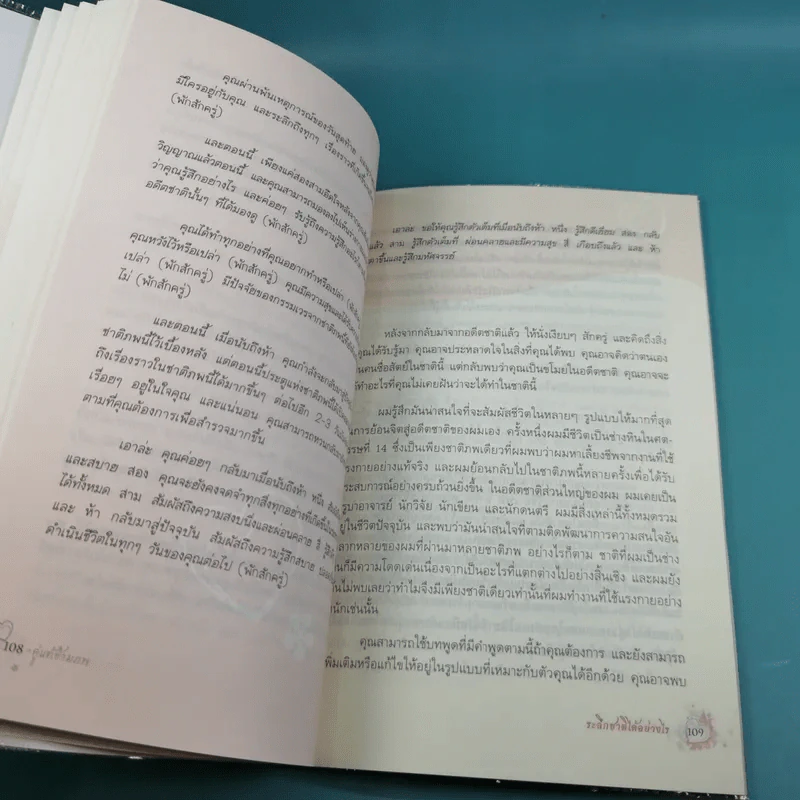 คุณผ่านพ้นเหตุการณ์ของวันสุดท้าย
มีใครอยู่กับคุณ และระลึกถึงทุกๆ เรื่องราวที่เกิดขึ้น
(พักสักครู่)
และตอนนี้ เพียงแค่สองสามอึดใจหลังจาก
วิญญาณแล้วตอนนี้ และคุณสามารถมองลงไปเห็นร่าง
ว่าคุณรู้สึกอย่างไร และค่อยๆ รับรู้ถึงความรู้สึก
อดีตชาตินั้นๆ ที่ได้มองดู (พักสักครู่)
คุณได้ทำทุกอย่างที่คุณอยากทำหรือเปล่า
คุณหวังไว้หรือเปล่า (พักสักครู่) คุณมีความสุขและ
เปล่า (พักสักครู่) มีปัจจัยของกรรมเวรจากชาติภพนี้
ไม่ (พักสักครู่)
และตอนนี้ เมื่อนับถึงห้า คุณกำลังจะกลับมาสู่
ชาติภพนี้ไว้เบื้องหลัง แต่ตอนนี้ประตูแห่งชาติภพนี้ได้
ถึงเรื่องราวในชาติภพนี้ได้มากขึ้นๆ ต่อไปอีก 2-3 วัน
เรื่อยๆ อยู่ในใจคุณ และแน่นอน คุณสามารถหวนกลับ
ตามที่คุณต้องการเพื่อสำรวจมากขึ้น
เอาล่ะ คุณค่อยๆ กลับมาเมื่อนับถึงห้า หนึ่ง
และสบาย สอง คุณจะยังคงจดจำทุกสิ่งทุกอย่างที่เกิดขึ้น
ได้ทั้งหมด สาม สัมผัสถึงความสงบนิ่งและผ่อนคลาย สี่
และ ห้า กลับมาสู่ปัจจุบัน สัมผัสถึงความรู้สึกสบาย
ดำเนินชีวิตในทุกๆ วันของคุณต่อไป (พักสักครู่)
108 คู่แท้ข้ามภพ
เอาล่ะ ขอให้คุณรู้สึกตัวเต็มที่เมื่อนับถึงห้า หนึ่ง รู้สึกดีเยี่ยม สอง กลับ
แล้ว สาม รู้สึกตัวเต็มที่ ผ่อนคลายและมีความสุข สี่ เกือบถึงแล้ว และ ห้า
ตาขึ้นและรู้สึกมหัศจรรย์
หลังจากกลับมาจากอดีตชาติแล้ว ให้นั่งเงียบๆ สักครู่ และคิดถึงสิ่ง
คุณได้รับรู้มา คุณอาจประหลาดใจในสิ่งที่คุณได้พบ คุณอาจคิดว่าตนเอง
นคนซื่อสัตย์ในชาตินี้ แต่กลับพบว่าคุณเป็นขโมยในอดีตชาติ คุณอาจจะ
ด้ทำอะไรที่คุณไม่เคยฝันว่าจะได้ทำในชาตินี้
ผมรู้สึกมันน่าสนใจที่จะสัมผัสชีวิตในหลายๆ รูปแบบให้มากที่สุด
นการย้อนจิตสู่อดีตชาติของผมเอง ครั้งหนึ่งผมมีชีวิตเป็นช่างหินในศต-
รรษที่ 14 ซึ่งเป็นเพียงชาติภพเดียวที่ผมพบว่าผมหาเลี้ยงชีพจากงานที่ใช้
รงกายอย่างแท้จริง และผมย้อนกลับไปในชาติภพนี้หลายครั้งเพื่อได้รับ
ระสบการณ์อย่างครบถ้วนยิ่งขึ้น ในอดีตชาติส่วนใหญ่ของผม ผมเคยเป็น
รูบาอาจารย์ นักวิจัย นักเขียน และนักดนตรี ผมมีสิ่งเหล่านี้ทั้งหมดรวม
ยู่ในชีวิตปัจจุบัน และพบว่ามันน่าสนใจที่ตามติดพัฒนาการความสนใจอัน
ลากหลายของผมที่ผ่านมาหลายชาติภพ อย่างไรก็ตาม ชาติที่ผมเป็นช่าง
นก็มีความโดดเด่นเนื่องจากเป็นอะไรที่แตกต่างไปอย่างสิ้นเชิง และผมยัง
นไม่พบเลยว่าทำไมจึงมีเพียงชาติเดียวเท่านั้นที่ผมทำงานที่ใช้แรงกายอย่าง
นักเช่นนั้น
คุณสามารถใช้บทพูดที่มีคำพูดตามนี้ถ้าคุณต้องการ และยังสามารถ
พิ่มเติมหรือแก้ไขให้อยู่ในรูปแบบที่เหมาะกับตัวคุณได้อีกด้วย คุณอาจพบ
ระลึกชาติได้อย่างไร 109